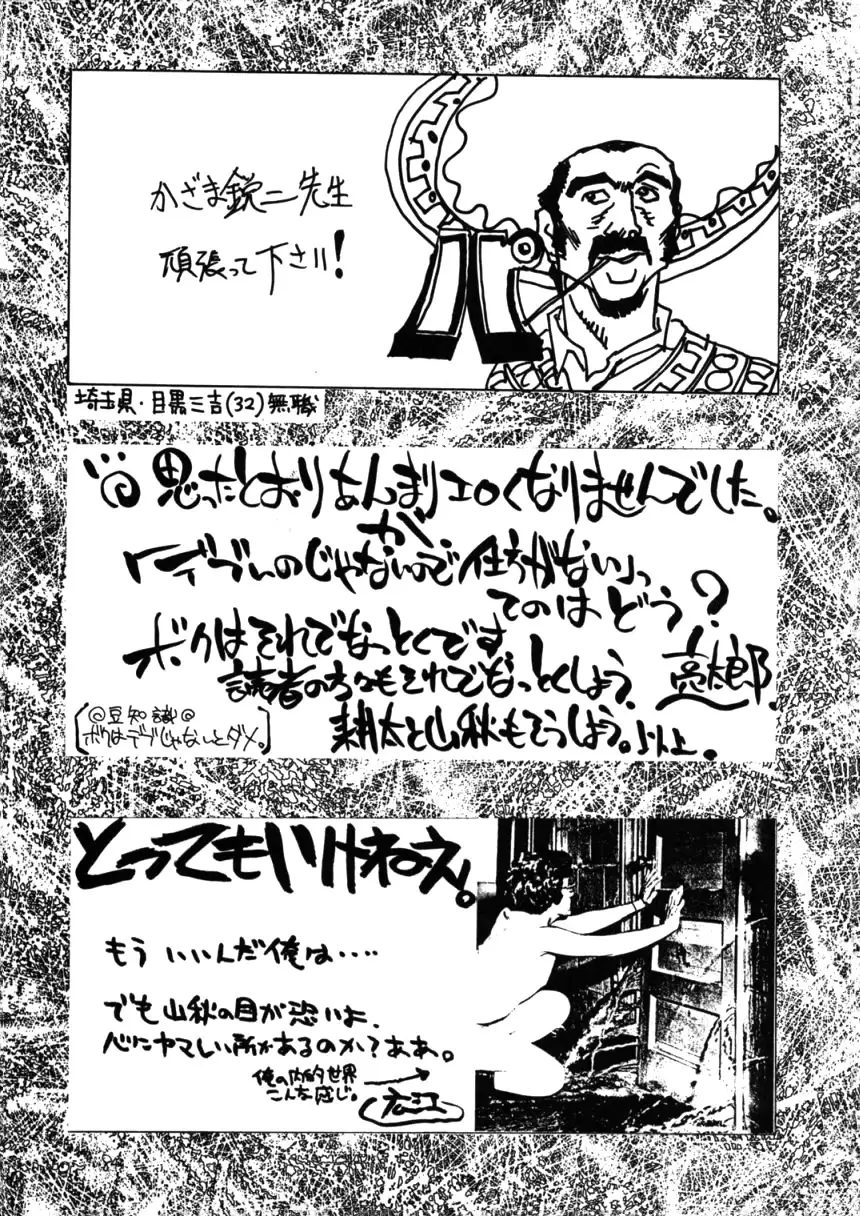 かざま鋭二先生
頑張って下さい!
埼玉県・目黒三吉(32)無職
思ったとおりあんまりエロくなりませんでした。
が
「デブいのじゃないので仕方がない」っ
てのはどう?
ボクはそれでなっとくです
読者の方々もそれでなっとくしよう、
亮太郎
耕太と山秋もそうしよう。以上。
◎豆知識◎
ボクはデブじゃないとダメ。
とってもいけねえ。
もういいんだ俺は‥‥
でも山秋の目が恐いよ、
心にヤマしい所があるのか?ああ。
俺の内的世界
こんな感じ。
広江